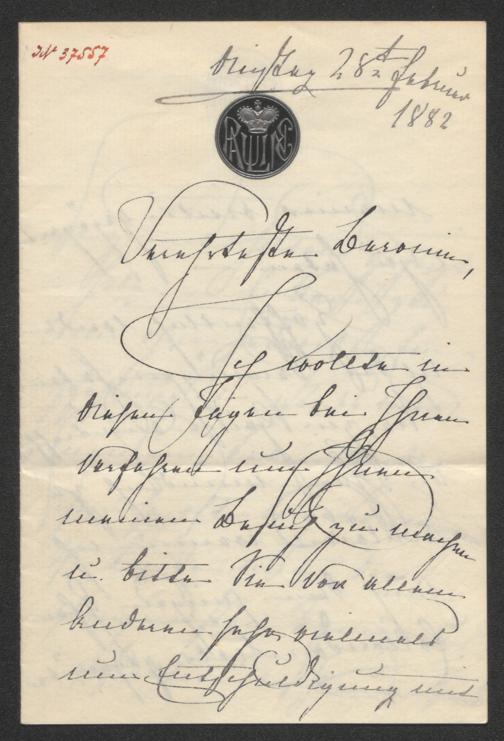 IN 37557
Dinstag 28t Februar
1882
PAULINE
Verehrteste Baronin,
Ich wollte in
diesen Tagen bei Ihnen
vorfahren um Ihnen
meinen Besuch zu machen
u. bitte Sie vor allem
Anderen sehr vielmals
um Entschuldigung mit